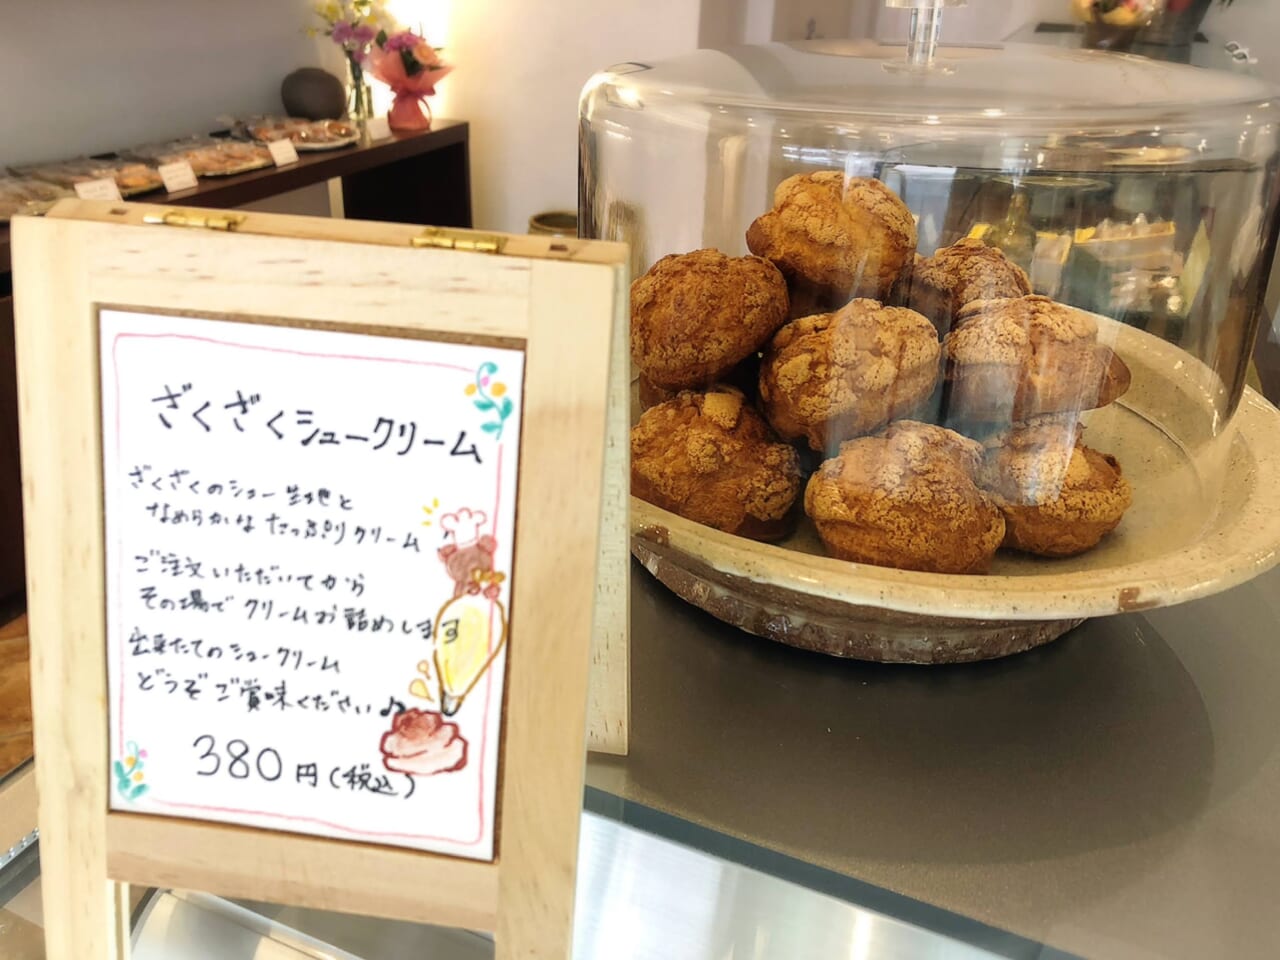 ざくざくシュークリーム
ざくざくのシュー生地と
なめらかなたっぷりクリーム
ご注文いただいてから
その場でクリームお詰めします
出来たてのシュークリーム
どうぞご賞味ください♪
380円(税込)